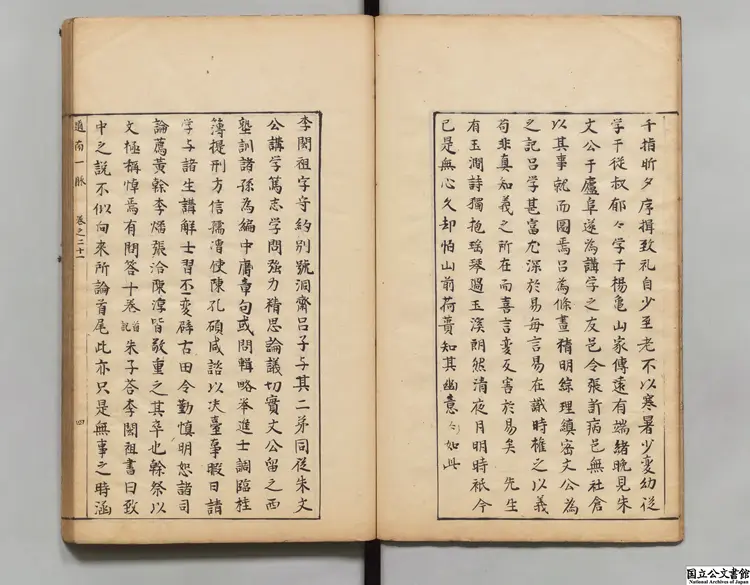 千指昕夕序揖致礼自少至老不以寒暑少変幼從
学于從叔郁々学于楊亀山家傳遠有端緒晚見朱
文公于廬阜遂為講学之友邑令張訢病邑無社倉
以其事就而圖焉呂為條畫精明綜理縝密文公為
之記呂学甚富尤深於易毎言易在識時権之以義
苟非真知義之所在而喜言変反害於易矣 先生
有玉澗詩獨抱瑤琴過玉溪朗然清夜月明時祇今
已是無心久却怕山前荷蕢知其幽意々如此
李閎祖字守約別號洞齋呂子与其二弟同從朱文
公講学篤志学問強力精思論議切實文公留之西
塾訓諸孫為編中庸章句或問輯略举進士調臨桂
簿提刑方信孺漕使陳孔碩咸諮以决臺事暇日請
学与諸生講解士習丕変辟古田令勤慎明恕諸司
論薦黃榦李燔張洽陳淳皆敬重之其卒也榦祭以
文極稱悼焉有問答十卷 朱子荅李閎祖書曰致
中之説不似向来所論首尾此亦只是無事之時涵
道南一脉 卷之二十一 四
国立公文書館
National Archives of Japan